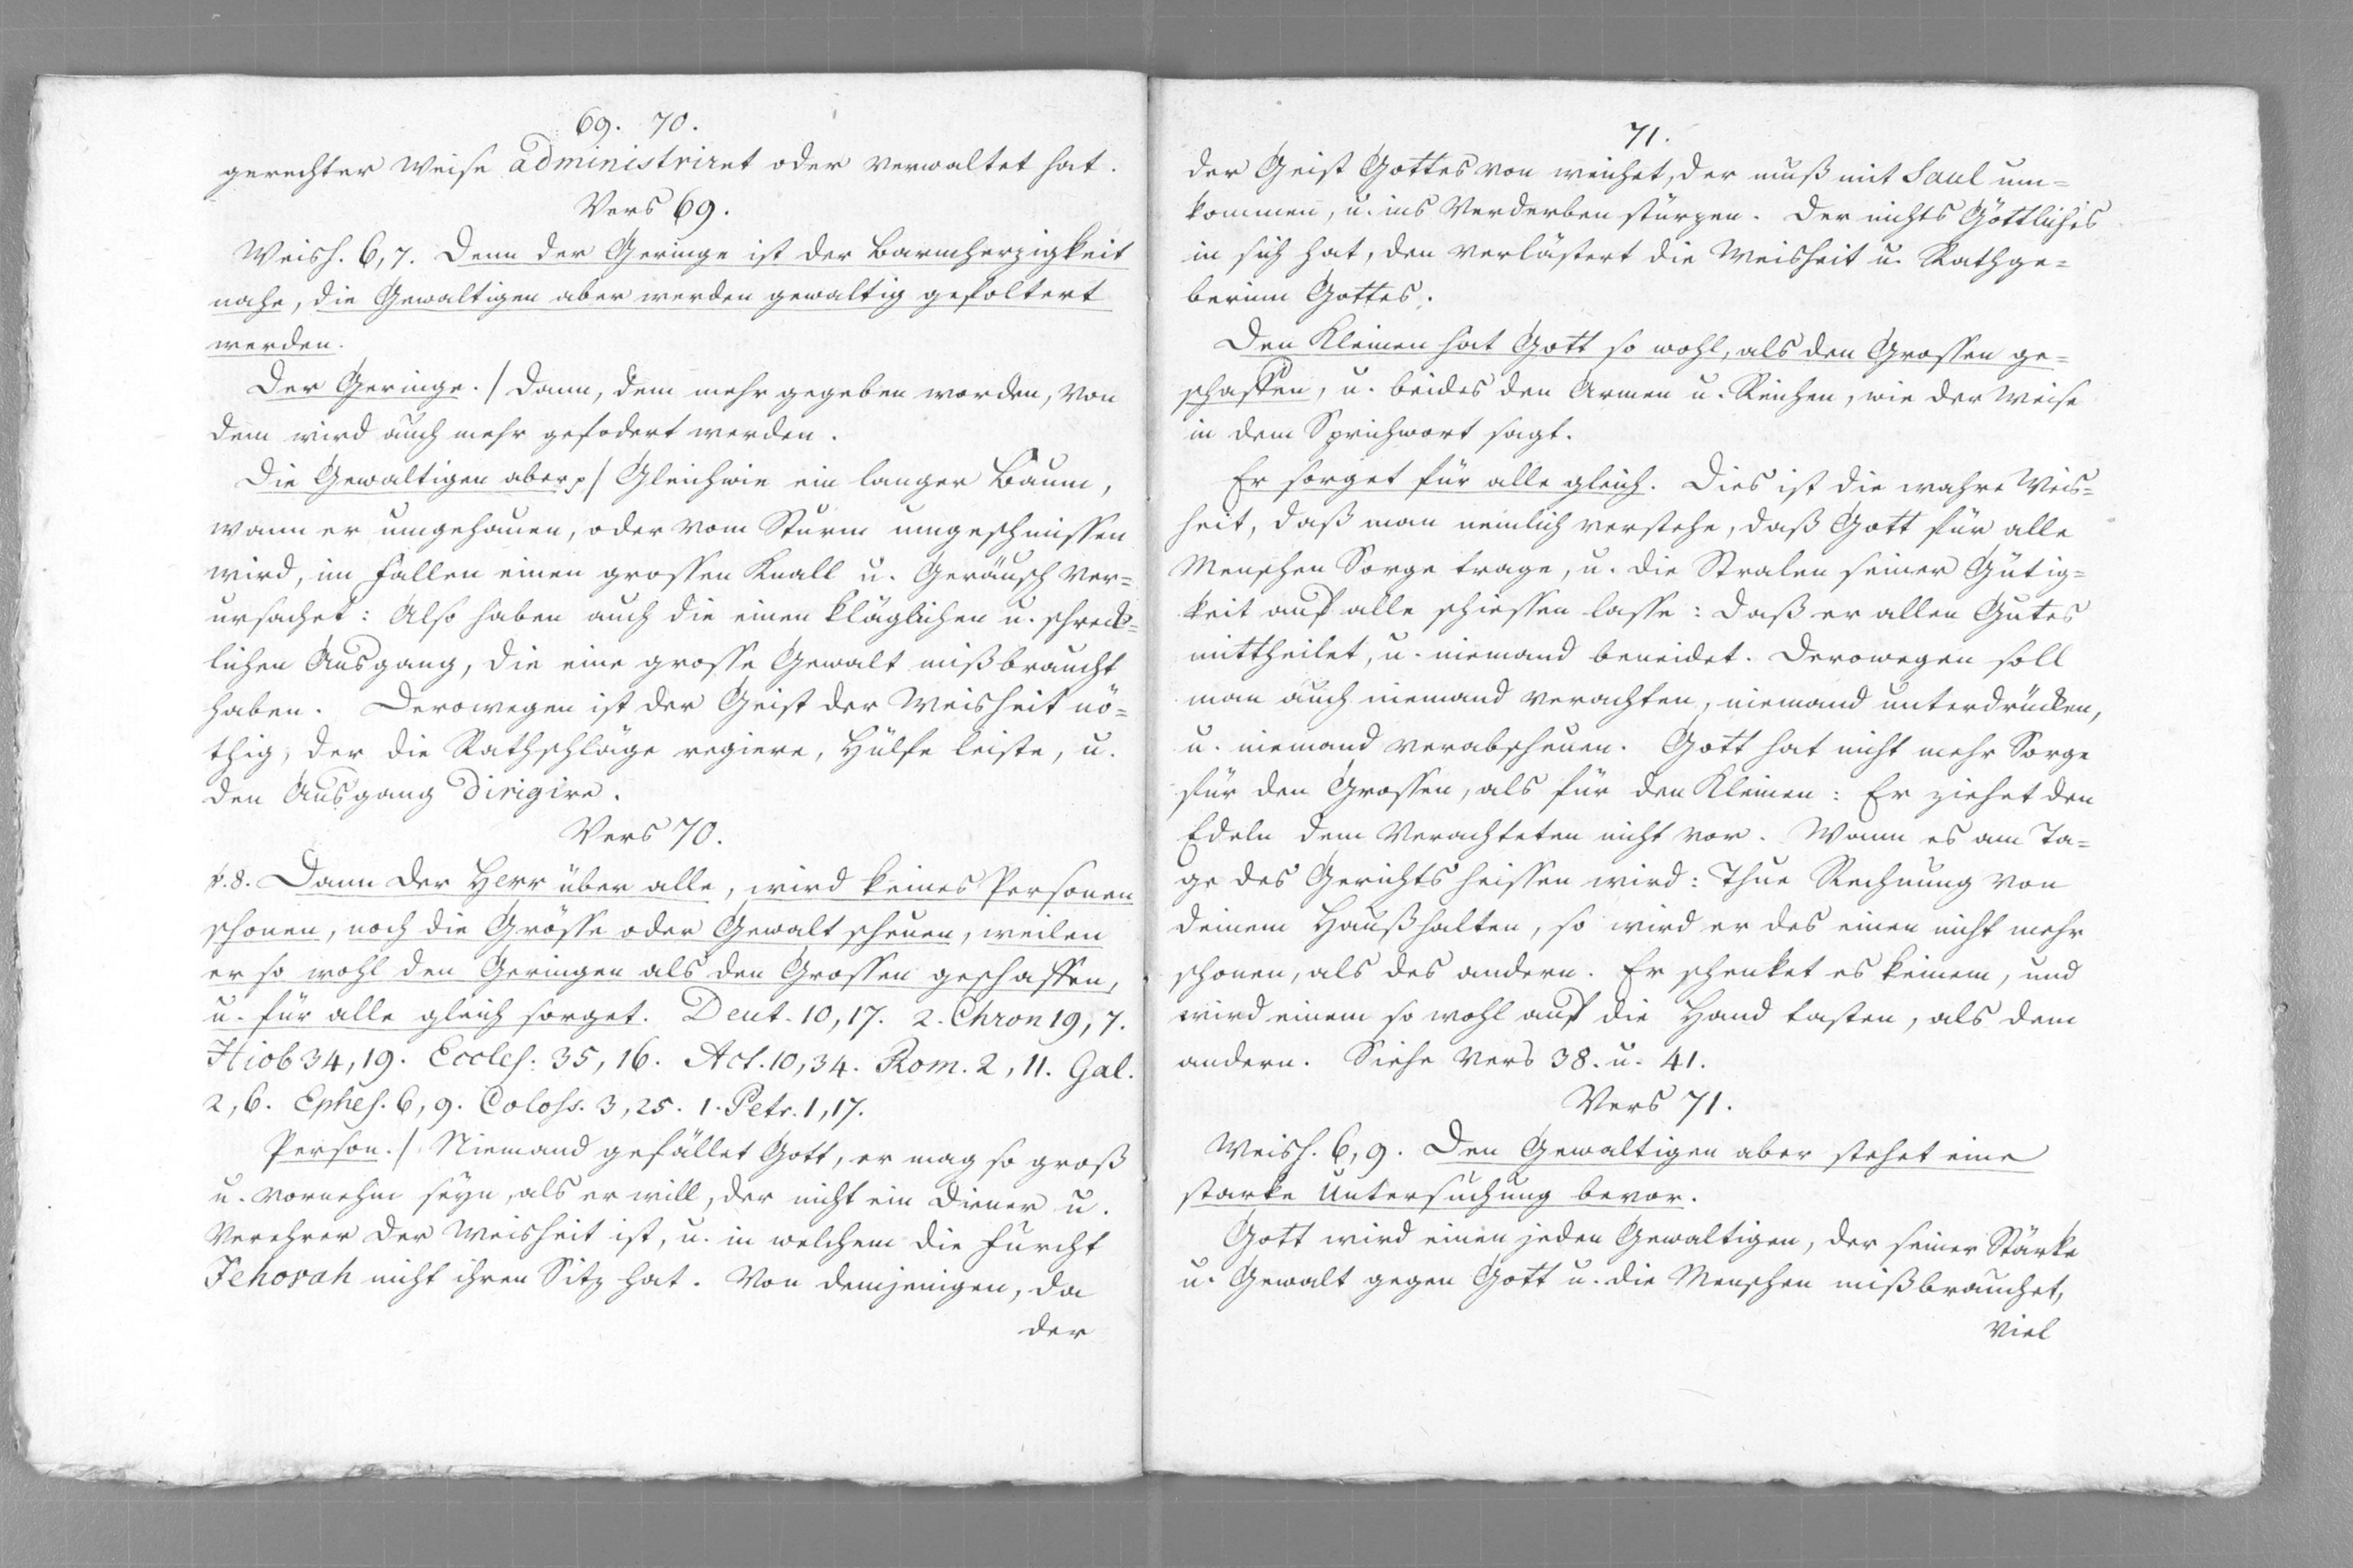 69. 70.
gerechter Weise administriret oder verwaltet hat.
Vers 69.
Weish. 6, 7. Denn der Geringe ist der Barmherzigkeit
nahe, die Gewaltigen aber werden gewaltig gefoltert
werden.
Der Geringe. / Dann, dem mehr gegeben worden, von
dem wird auch mehr gefodert werden.
Die Gewaltigen aber p / Gleichwie ein langer Baum,
wann er umgehauen, oder vom Sturm umgeschmissen
wird, im Fallen einen grossen Knall u. Geräusch ver=
ursachet: Also haben auch die einen kläglichen u. schreck=
lichen Ausgang, die eine grosse Gewalt mißbraucht
haben. Derowegen ist der Geist der Weisheit nö=
thig, der die Rathschläge regiere, Hülfe leiste, u.
den Ausgang dirigire.
Vers 70.
v. 8. Dann der Herr über alle, wird keines Personen
schonen, noch die Grösse oder Gewalt scheuen, weilen
er so wohl den Geringen als den Grossen geschaffen,
u. für alle gleich sorget. Deut. 10, 17. 2. Chron 19, 7.
Hiob 34, 19. Eccles. 35, 16. Act. 10, 34. Rom. 2, 11. Gal.
2, 6. Ephes. 6, 9. Coloss. 3, 25. 1. Petr. 1, 17.
Person. / Niemand gefället Gott, er mag so groß
u. vornehm seyn, als er will, der nicht ein Diener u.
Verehrer der Weisheit ist, u. in welchem die Furcht
Jehovah nicht ihren Sitz hat. Von demjenigen, da
der
71.
der Geist Gottes von weichet, der muß mit Saul um=
kommen, u. ins Verderben stürzen. Der nichts Göttliches
in sich hat, den verlästert die Weisheit u. Rathge=
berinn Gottes.
Den Kleinen hat Gott so wohl, als den Grossen ge=
schaffen, u. beides den Armen u. Reichen, wie der Weise
in dem Sprichwort sagt.
Er sorget für alle gleich. Dies ist die wahre Weis=
heit, daß man nemlich verstehe, daß Gott für alle
Menschen Sorge trage, u. die Stralen seiner Gütig=
keit auf alle schiessen lasse: daß er allen Gutes
mittheilet, u. niemand beneidet. Derowegen soll
man auch niemand verachten, niemand unterdrücken,
u. niemand verabscheuen. Gott hat nicht mehr Sorge
für den Grossen, als für den Kleinen: Er ziehet den
Edeln dem Verachteten nicht vor. Wann es am Ta=
ge des Gerichts heissen wird: Thue Rechnung von
deinem Haußhalten, so wird er des einen nicht mehr
schonen, als des andern. Er schenket es keinem, und
wird einem so wohl auf die Hand tasten, als dem
andern. Siehe Vers 38. u. 41.
Vers 71.
Weish. 6, 9. Den Gewaltigen aber stehet eine
starke Untersuchung bevor.
Gott wird einen jeden Gewaltigen, der seiner Stärke
u. Gewalt gegen Gott u. die Menschen mißbrauchet,
viel